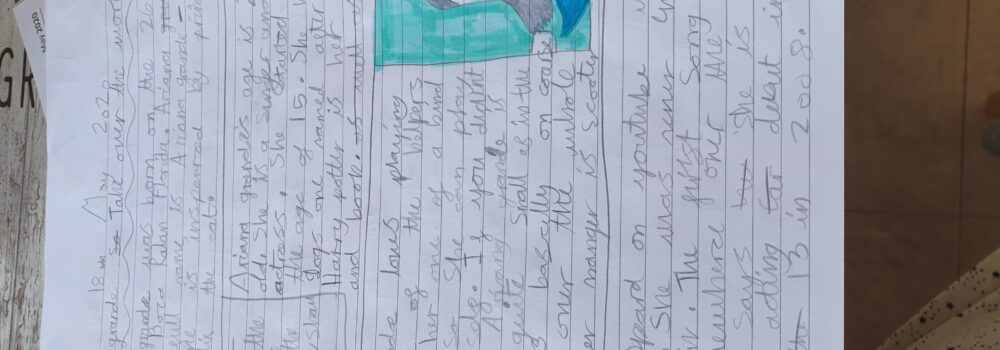 18th May 2020
grande so Take over the wor
grade was born on the 26
Boca Ratan Florida. Ariana
full name is Ariana grande -
is inspenored by
the cat.
Ariana grandes age is
the old. She is a singer and
the actress. She Started
the age of 15. She
dogs one named after
Hairry potter is her
and book.
loves playing
of the helpers
her one of a band
so She can play
solo. If you didint
Ariana grande is
quite Small as in the
bascally on coarse
over the whole
manger is scooter
peard on youtube
She was siner in
The first Song
one the
says She is
acting debut in
13 in 2008.
May 2020
GR